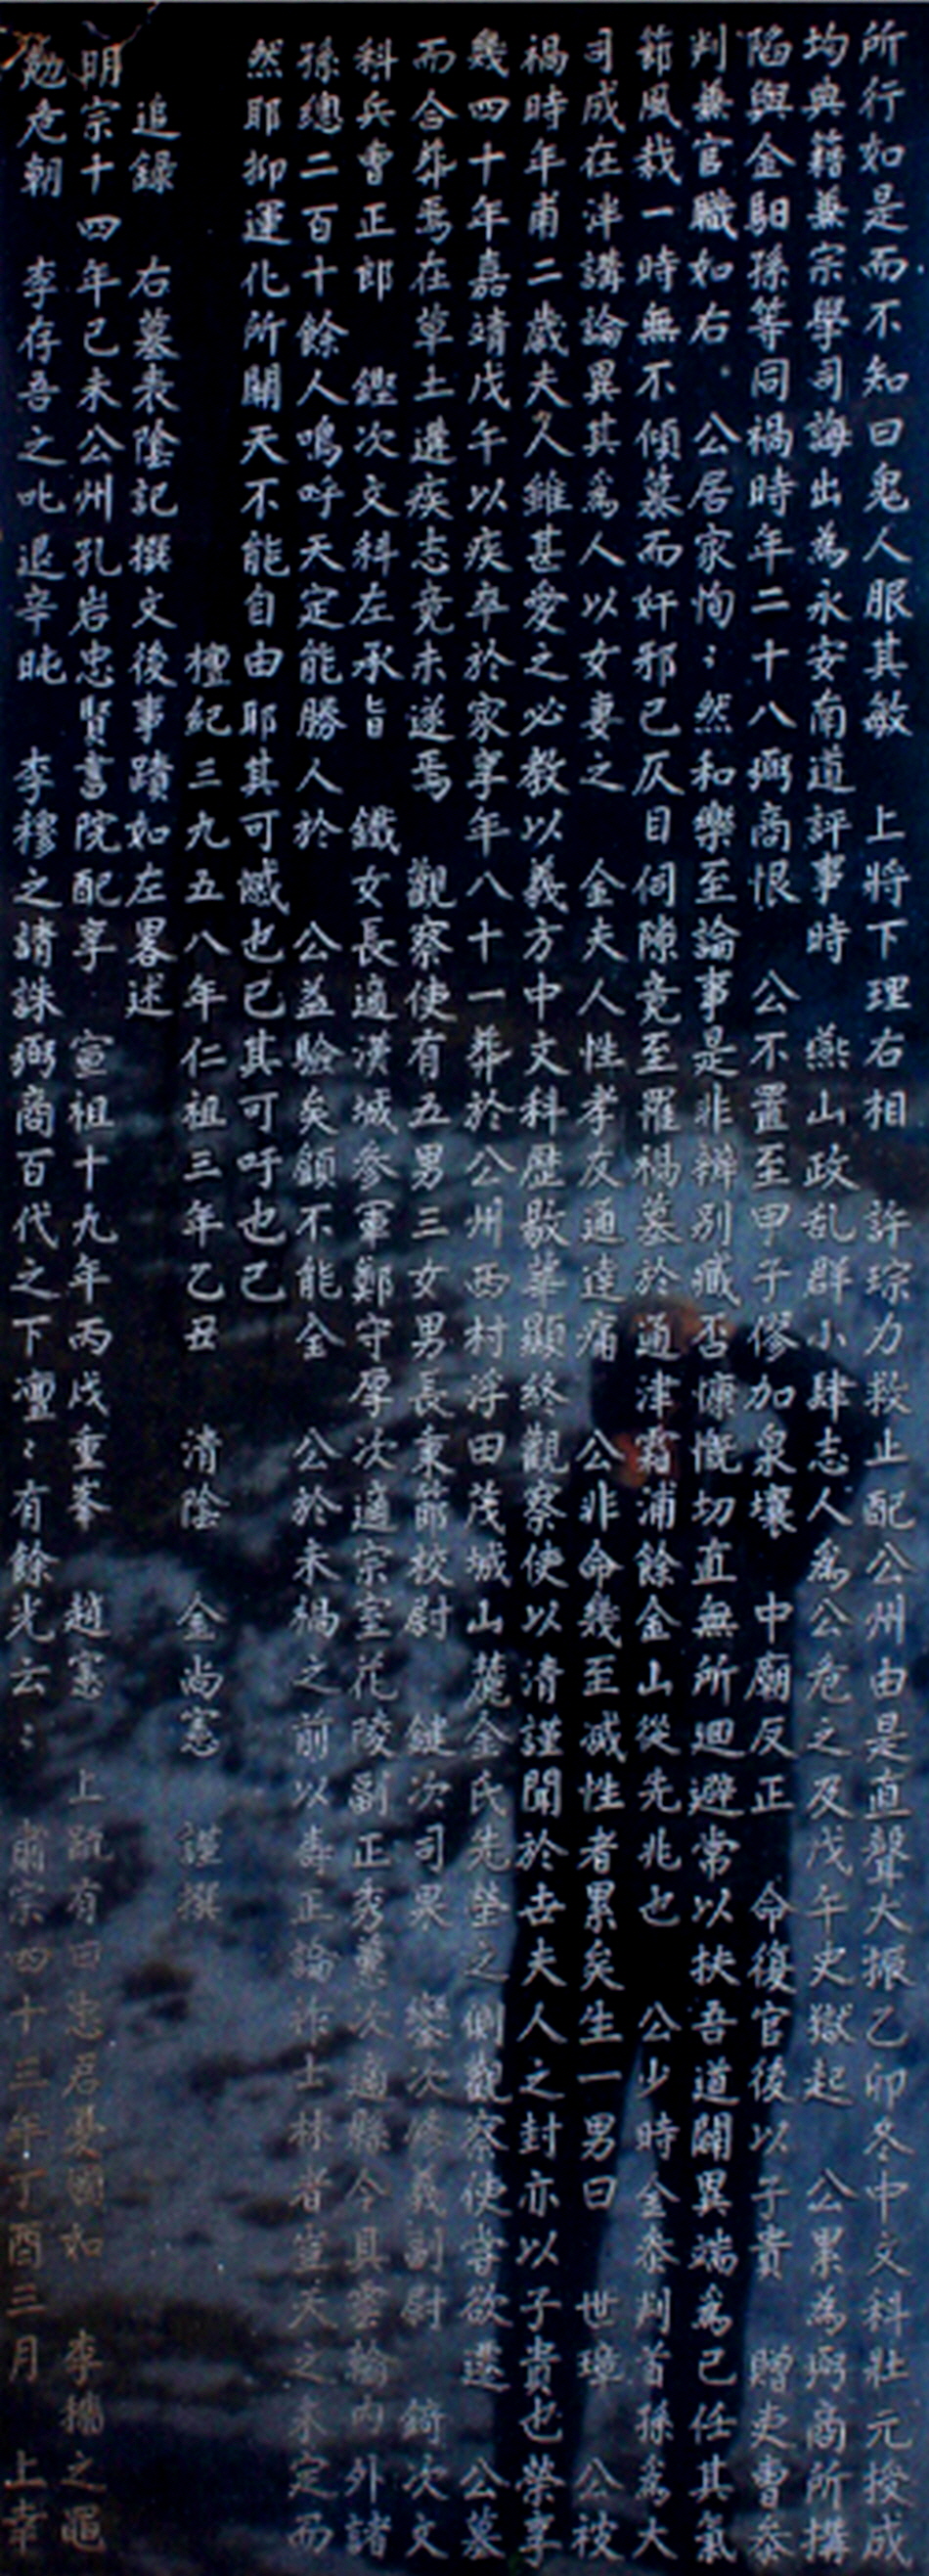 所行如是而不知曰鬼人服其敏 上將下理右相 許琮力救止配公州由是直聲大振乙卯冬中文科壯元授成
均典籍兼宗學司誨出為永安南道評事時 燕山政乱群小肆志人為公危之及戊午史獄起 公累為弼商所搆
陷與金馹孫等同禍時年二十八弼商恨 公不置至甲子僇加泉壤 中廟反正 命復官後以子貴 贈吏曹叅
判兼官職如右 公居家恂〻然和樂至論事是非辨別臧否慷慨切直無所廻避常以扶吾道闢異端爲己任其氣
節風裁一時無不傾慕而奸邪已仄目伺隙竟至罹禍墓於通津霜浦餘金山從先兆也 公少時金叅判首孫爲大
司成在泮講論異其爲人以女妻之 金夫人性孝友通達痛 公非命幾至滅性者累矣生一男曰 世璋 公被
禍時年甫二歲夫人雖甚愛之必教以義方中文科歷敭華顯終觀察使以清謹聞於世夫人之封亦以子貴也榮享
幾四十年嘉靖戊午以疾卒於家享年八十一葬於公州西村浮田茂城山麓金氏先塋之側觀察使甞欲遷 公墓
而合葬焉在草土遘疾志竟未遂焉 觀察使有五男三女男長秉節校尉 鍵次司果 鑾次修義副尉 錡次文
科兵曹正郎 鏗次文科左承旨 鐵女長適漢城參軍鄭守厚次適宗室花陵副正秀薰次適縣令具雲翰內外諸
孫總二百十餘人嗚呼天定能勝人於 公益驗矣顧不能全 公於未禍之前以壽正論祚士林者豈天之未定而
然耶抑運化所關天不能自由耶其可憾也已其可吁也已
檀紀三九五八年仁祖三年乙丑 清陰 金尚憲 謹撰
追錄 右墓表陰記撰文後事蹟如左畧述
明宗十四年己未公州孔岩忠賢書院配享 宣祖十九年丙戌重峯 趙憲 上䟽有曰忠君憂國如 李穆之黽
勉危朝 李存吾之叱退辛旽 李穆之請誅弼商百代之下凜〻有餘光云〻 肅宗四十三年丁酉三月 上幸